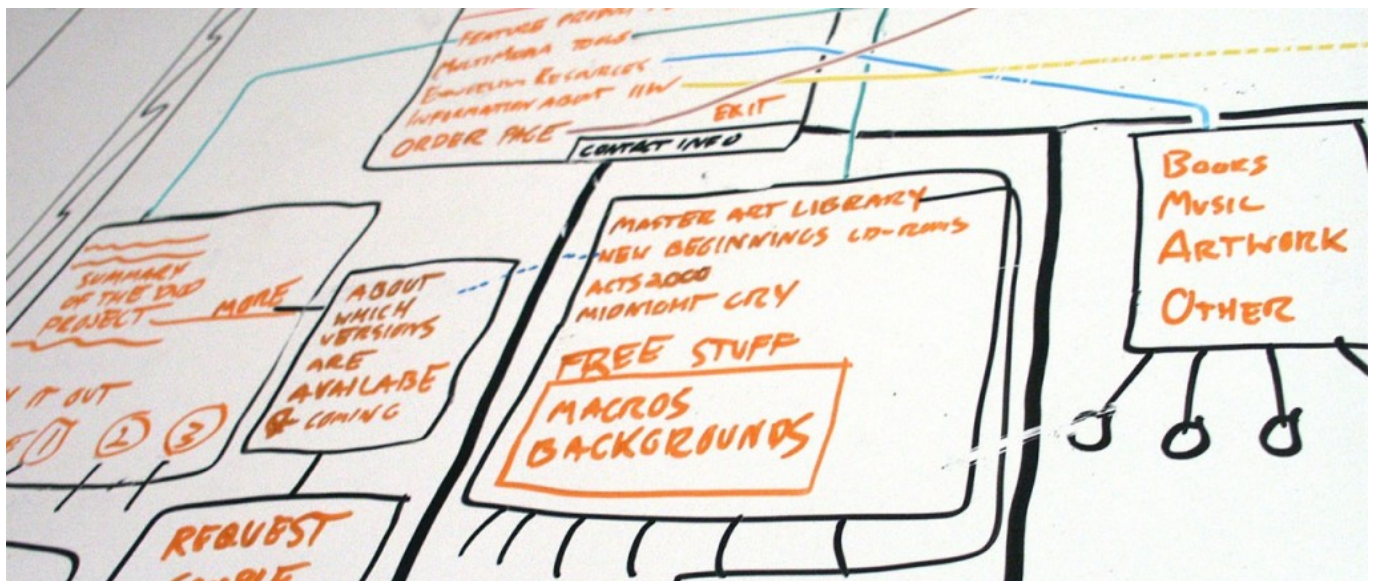 FEATURE PRODUCT
MULTIMEDIA TOOLS
EVANGELISM RESOURCES
INFORMATION ABOUT
ORDER PAGE
EXIT
CONTACT INFO
SUMMARY
OF THE DVD
PROJECT
MORE
IT OUT
1 2 3
ABOUT
WHICH
VERSIONS
ARE
AVAILABE
COMING
REQUEST
MASTER ART LIBRARY
NEW BEGINNINGS CD-ROMS
ACTS 2000
MIDNIGHT CRY
FREE STUFF
MACROS
BACKGROUNDS
BOOKS
MUSIC
ARTWORK
OTHER